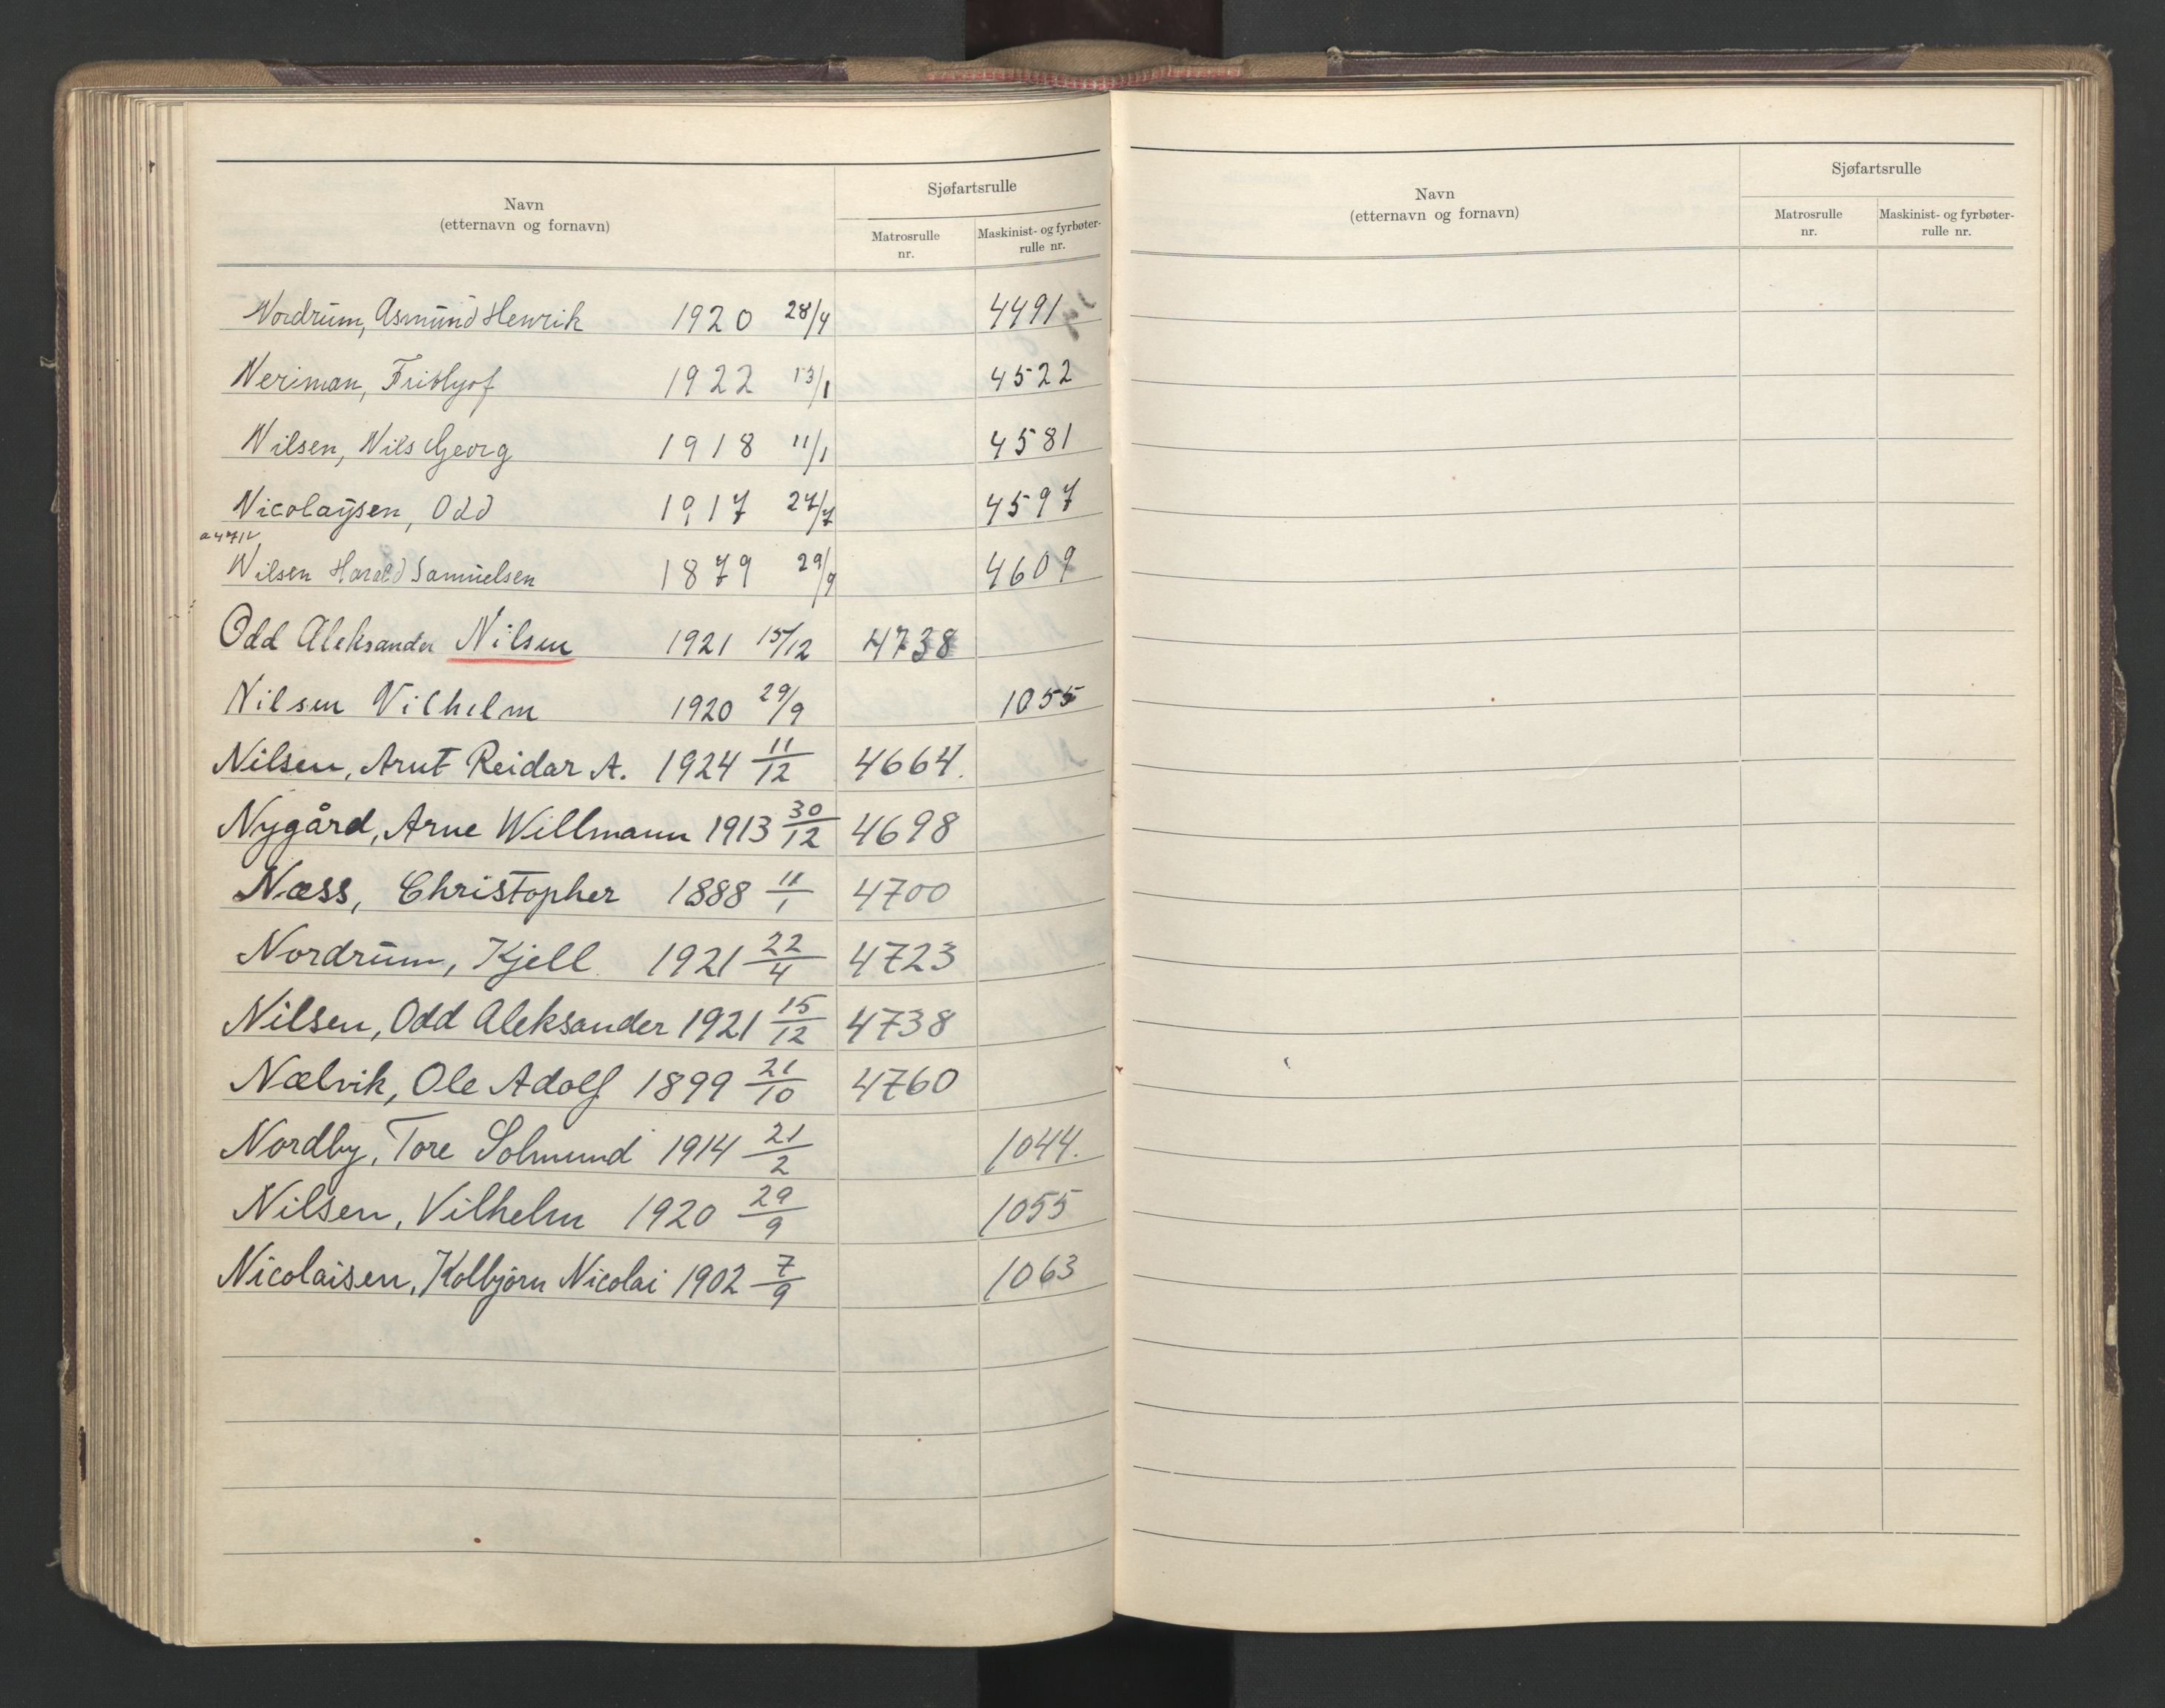 Navn
(etternavn og fornavn)
Sjøfartsrulle
Matrosrulle
nr.
Maskinist- og fyrbøter-
rulle nr.
Nordrum, Asmund Henrik 1920 28/4 4491
Neriman, Frithjof 1922 13/1 4522
Nilsen, Nils Georg 1918 11/1 4581
Nicolaysen, Odd 1917 27/7 4597
Nilsen Harald Samuelsen 1879 29/9 4609
Odd Aleksander Nilsen 1921 15/12 4738
Nilsen Vilhelm 1920 29/9 1055
Nilsen, Arnt Reidar A. 1924 11/12 4664.
Nygård, Arne Willmann 1913 30/12 4698
Næss, Christopher 1888 11/1 4700
Nordrum, Kjell 1921 22/4 4723
Nilsen, Odd Aleksander 1921 15/12 4738
Nælvik, Ole Adolf 1899 21/10 4760
Nordby, Tore Solmund 1914 21/2 1044.
Nilsen, Vilhelm 1920 29/9 1055
Nicolaisen, Kolbjørn Nicolai 1902 7/9 1063
Navn
(etternavn og fornavn)
Sjøfartsrulle
Matrosrulle
nr.
Maskinist- og fyrbøter-
rulle nr.